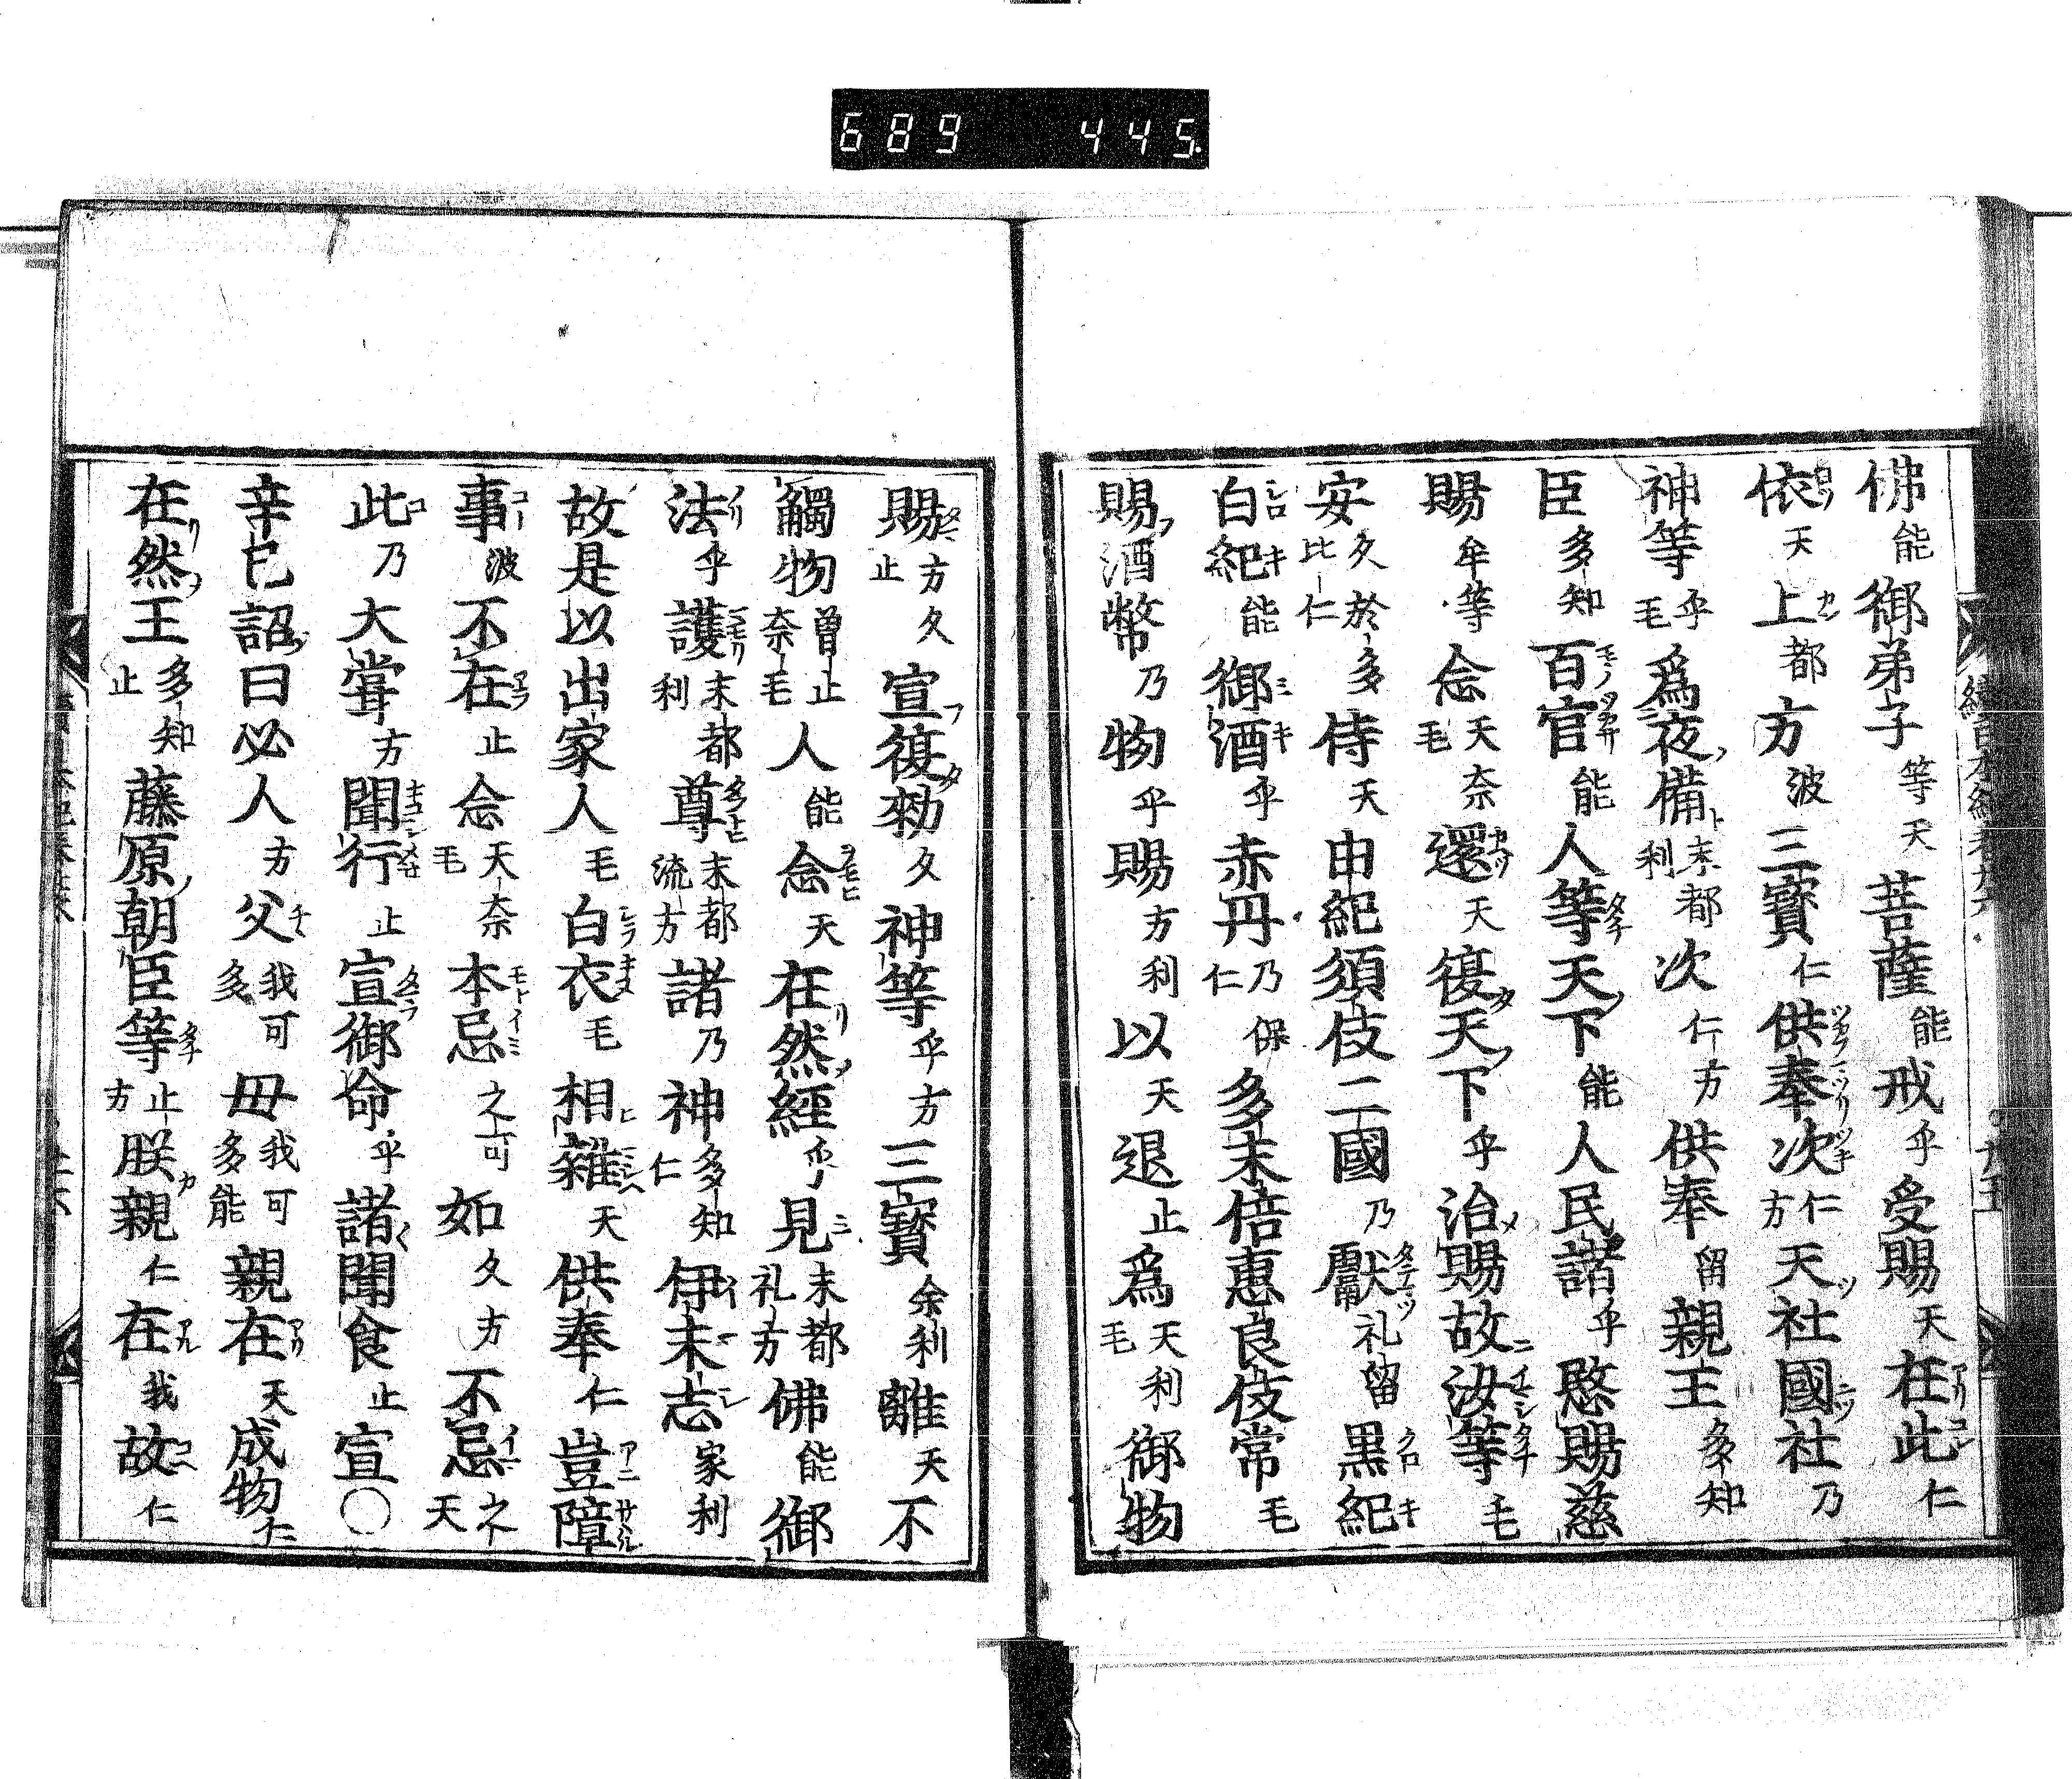 689 445
佛能御弟子等天菩薩能戒乎受賜天在此仁
依天上都方波三寶仁供奉次仁方天社國社乃
神等乎毛爲夜備末利都次仁方供奉留親王多知
臣多知百官能人等天下能人民諸乎愍賜慈
賜牟等念天毛奈還天復天下乎治賜故汝等毛
安久比於仁多侍天由紀須伎二國乃獻礼留黒紀
白紀能御酒乎赤丹乃仁保多末倍惠良伎常毛
賜酒幣乃物乎賜方利以天退止爲天毛利御物
賜方止久宣復勅久神等乎方三寶余利離天不
觸物曽奈止毛人能念天在然經乎見末礼都方佛能御
法乎護末利都尊末流都方諸乃神多仁知伊末志家利
故是以出家人毛白衣毛相雜天供奉仁豈障
事波不在止念天毛奈本忌之可如久方不忌之天
此乃大甞方聞行止宣御命乎諸聞食止宣〇
辛巳詔曰必人方父我多可毋我多可能親在天成物仁
在然王多止知藤原朝臣等止方朕親仁在我故仁